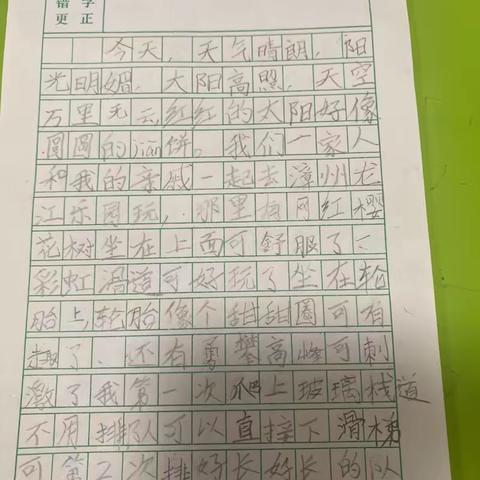 错字
更正
今天，天气晴朗，阳
光明媚，太阳高照，天空
万里无云，红红的太阳好像
圆圆的jiān饼。我们一家人
和我的亲戚一起去漳州龙
江乐园玩，那里有网红樱
花树坐在上面可舒服了、
彩虹滑道可好玩了坐在轮
胎上，轮胎像个甜甜圈可有
趣了、还有勇攀高峰可刺
激了我第一次爬上玻璃栈道
不用排队可以直接下滑梯
可第2次排好长好长的队